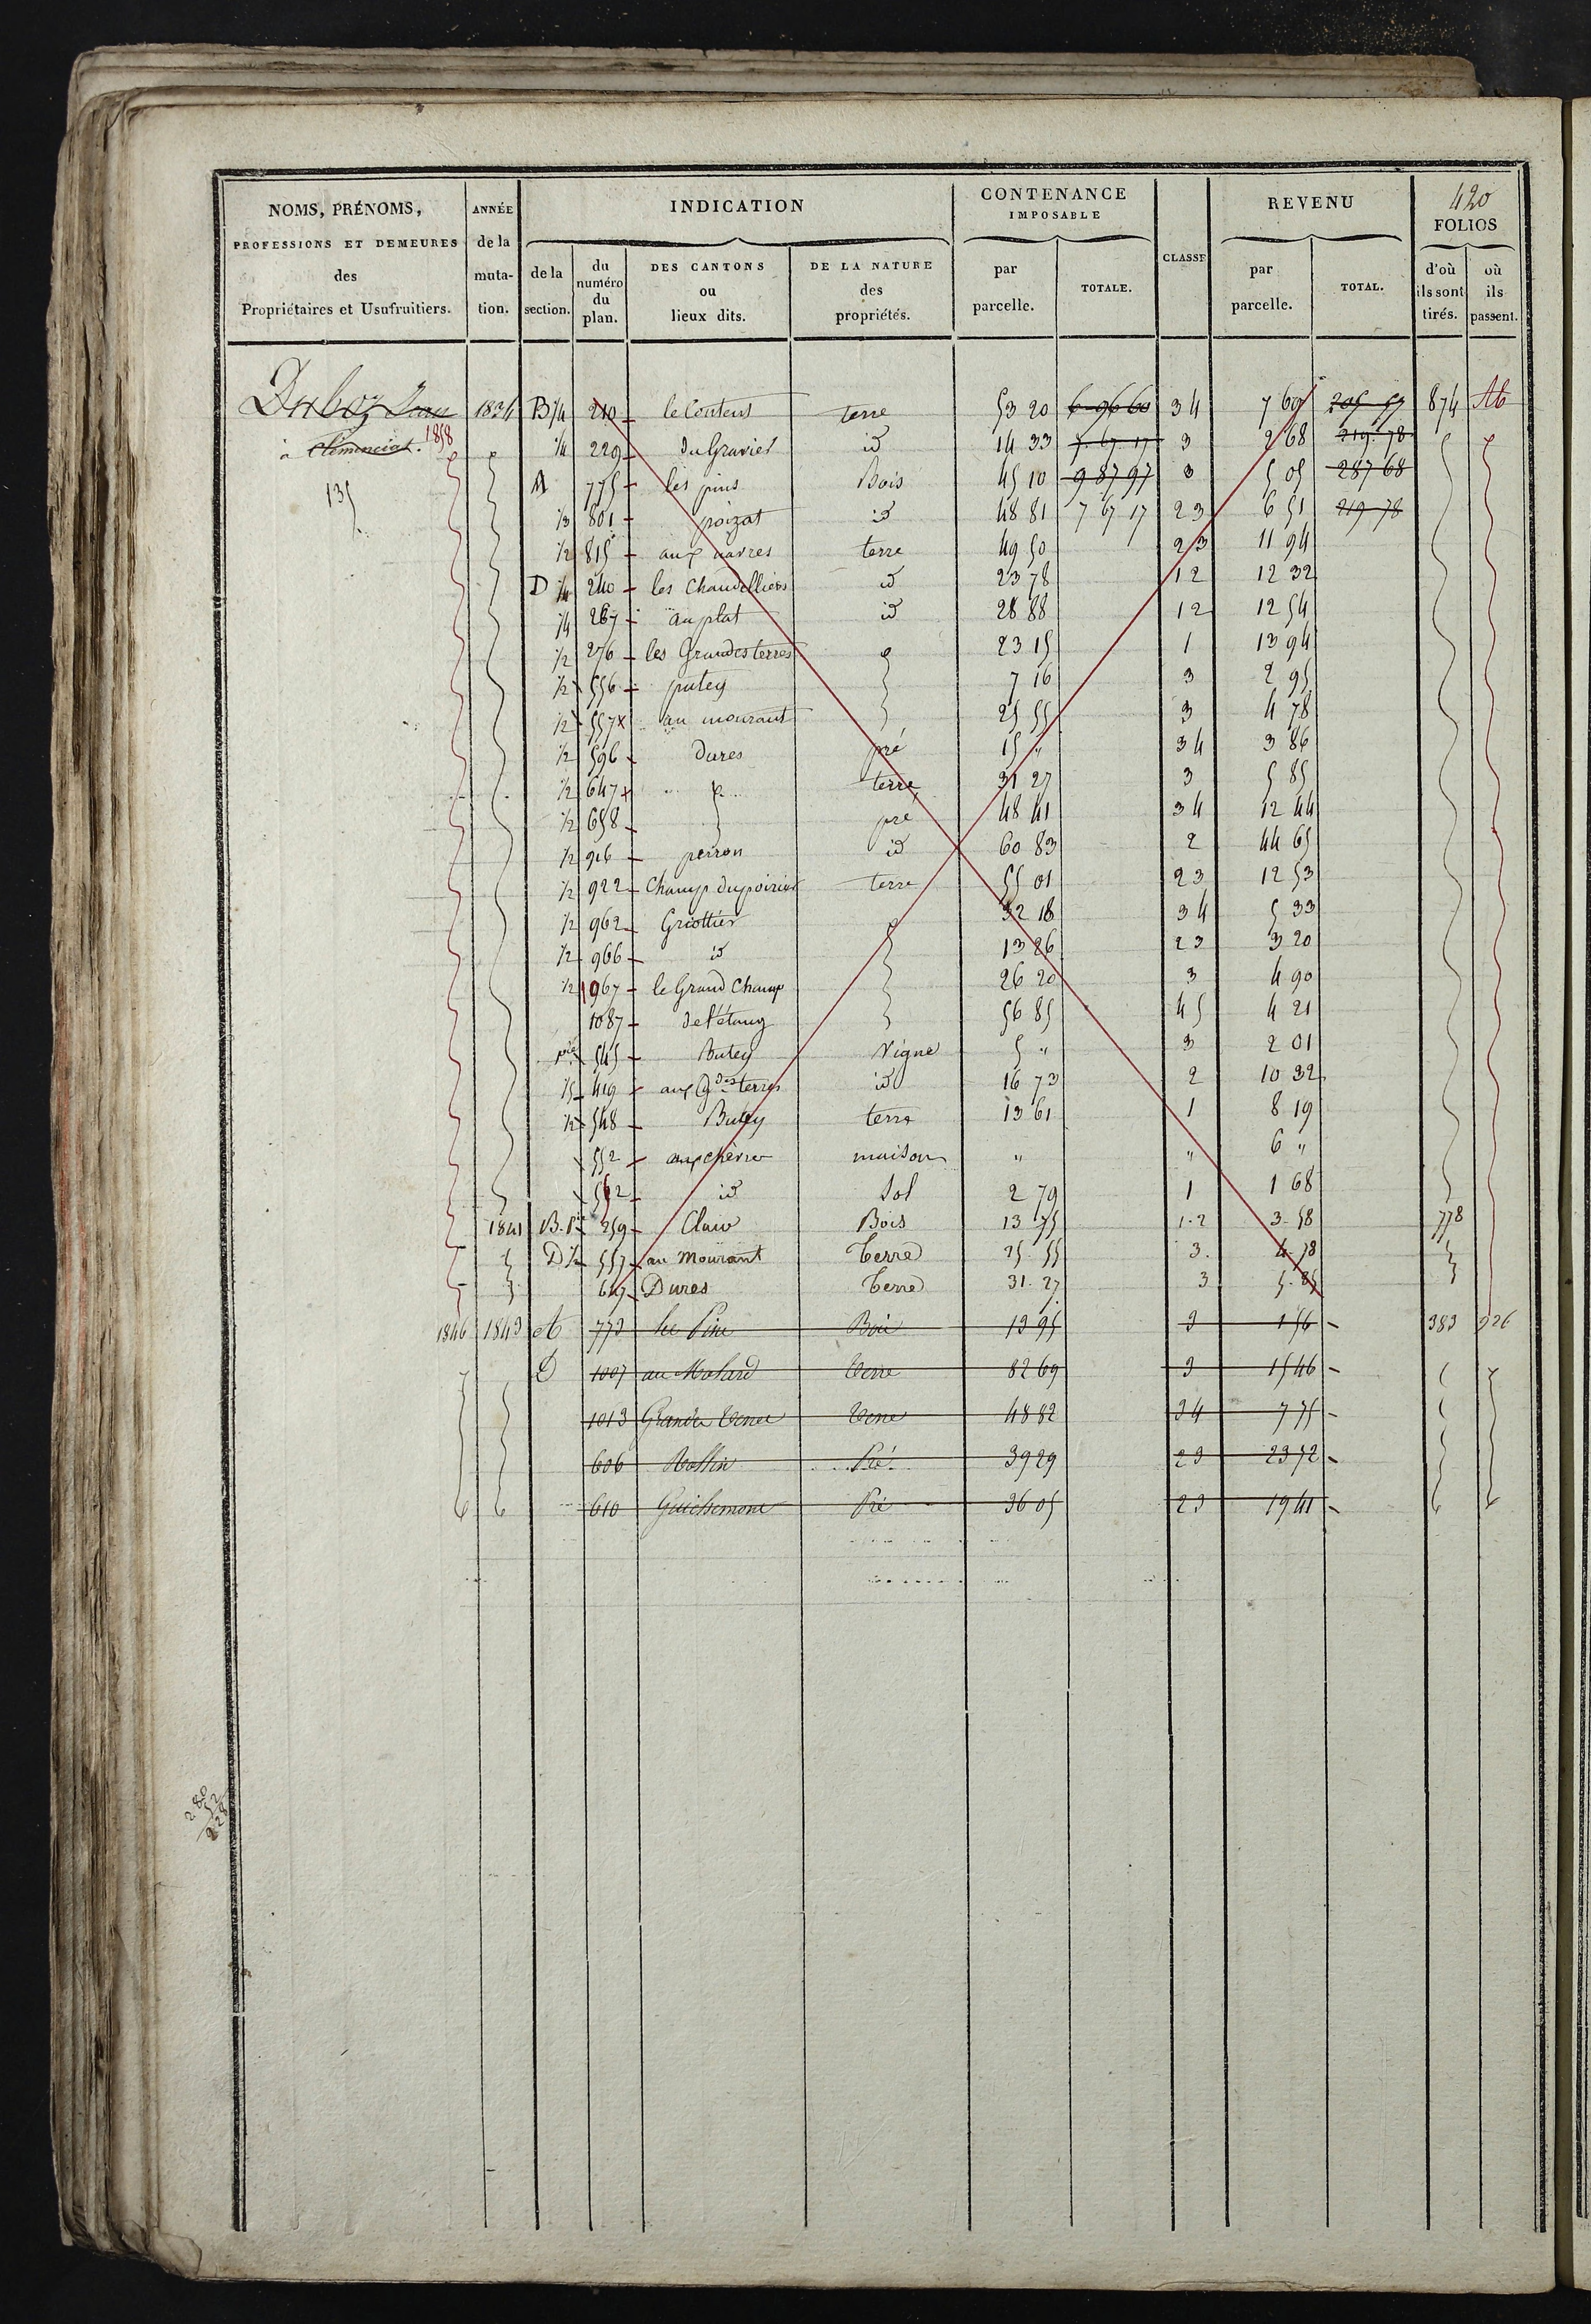 420
NOMS, PRÉNOMS, ANNÉE INDICATION CONTENANCE IMPOSABLE CLASSE REVENU FOLIOS
PROFESSIONS ET DEMEURES des Propriétaires et Usufruitiers. de la mutation. de la section. du numéro du plan. DES CANTONS ou lieux dits. DE LA NATURE des propriétés. par parcelle. TOTALE. par parcelle. TOTAL. d'où ils sont tirés. où ils passent.
Jean 1834 B 1/4 210 terre 53 20 6 96 60 34 7 69 205 57 874
à Clémenciat. 1858 1/4 229 du Gravier id 14 33 7 67 17 3 2 68 219 78
135 A 775 les pins Bois 45 10 9 87 97 3 5 05 287 68
1/3 801 poizat id 48 81 7 67 17 23 6 51 219 78
1/2 815 aux terre 49 50 23 11 94
D 1/4 240 les Chandelliers id 23 78 12 12 32
1/4 267 au plat id 28 88 12 12 54
1/2 276 les Grandes terres 23 15 1 13 94
1/2 556 putey 7 16 3 2 95
1/2 557 x au mourant 25 55 3 4 78
1/2 596 Dures pré 15 " 34 3 86
1/2 647 x terre 31 27 3 5 85
1/2 658 pré 48 41 34 12 44
1/2 916 perron id 60 83 2 44 65
1/2 922 Champ du poirier terre 55 01 23 12 53
1/2 962 Griottier 32 18 34 5 33
1/2 966 id 13 26 23 3 20
1/2 967 le Grand Champ 26 20 3 4 90
1087 de l'étang 56 85 45 4 21
pie 545 Butey Vigne 5 " 3 2 01
1/5 419 aux Gdes terres id 16 73 2 10 32
1/2 548 Butey terre 13 61 1 8 19
552 aux chèvre maison " " 6 "
562 id Sol 2 79 1 1 68
1841 B. 259 Bois 13 75 1-2 3-58 778
D 1/2 557 au Mourant Terre 25-55 3. 4-78
647 Dures Terre 31-27 3 5-85
1846 1843 A 773 les Pins Bois 13 95 3 1 56 383 926
D 1007 au Molard Terre 82 69 3 15 46
1013 Grandes Terres Terre 48 82 34 7 75
606 Pré 39 29 23 23 52
610 Pré 36 05 23 19 41
280
52
228